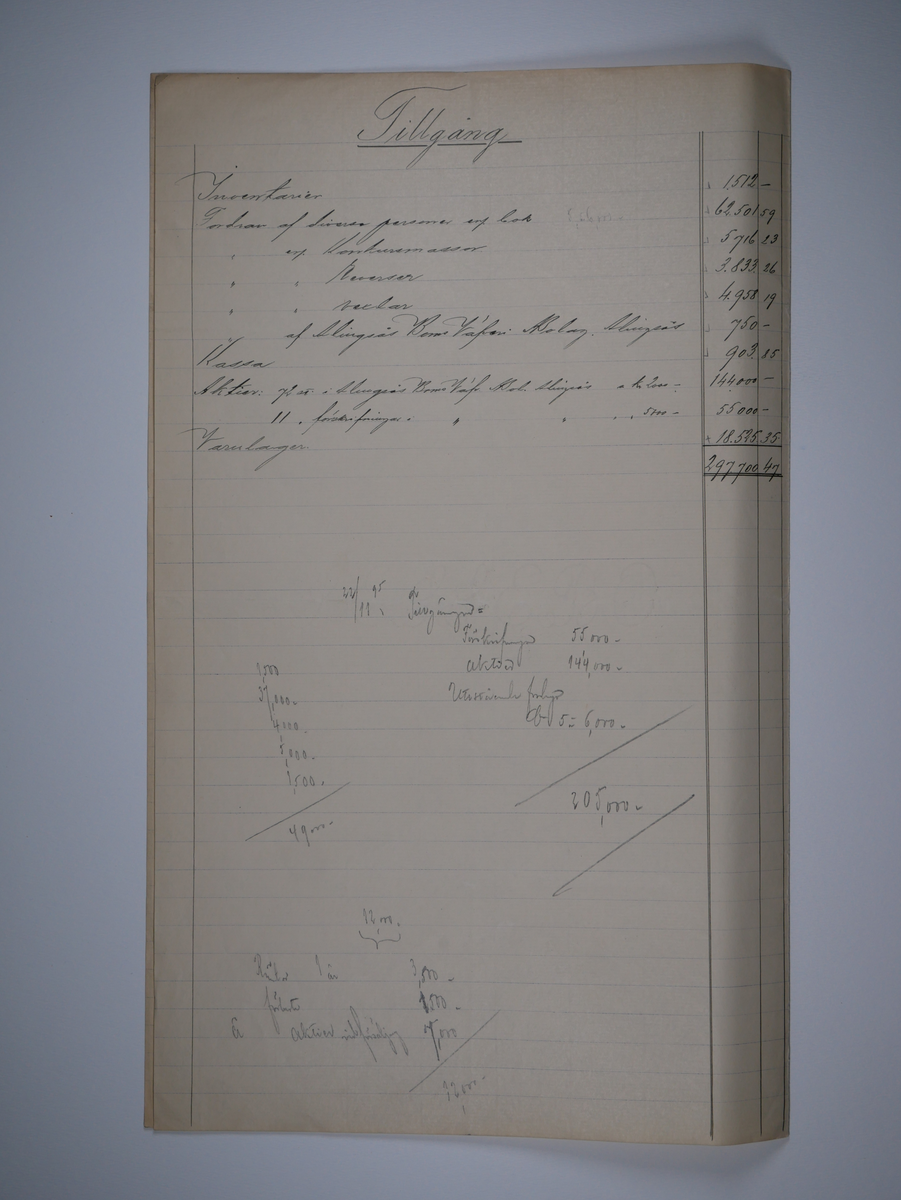 Tillgång
Inventarier 1.512 —
Fordran af diverse personer enl. bok 62.501 59
" enl. Konkursmassor 5716 23
" " Reverser 3.833 26
" " vexlar 4.958 19
af Alingsås Bom. Väfveri Abolag, Alingsås 750 —
Kassa 903 85
Aktier: 72 st. i Alingsås Bom. Väfv. Abol. Alingsås a kr 2000 — 144000 —
11 " förskrifningar i " " " " 5000 — 55000 —
Varulager 18.525 35
297700 47
22/11 95
Förskrifningar 55000 —
1,500 Aktier 144,000 —
37,000 —
4,000 — 5 à 6,000 —
5,000 —
1,500 — 205,000 —
49000 —
12,000 —
1 år 3,500 —
1500 —
Aktier 7,000
12,000 —